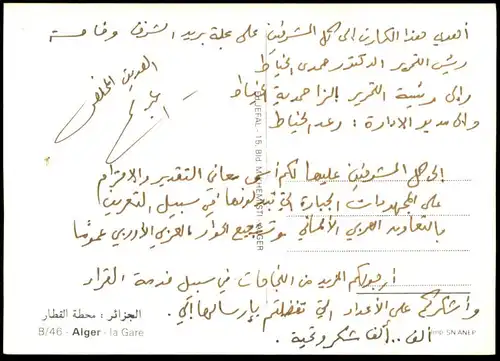 أهدي هذا الكارت إلى كل المشرفين على مجلة بريد الشرق وخاصة
رئيس التحرير الدكتور حمدي الخياط
وإلى رئيسة التحرير إلزا حمدية الخياط
وإلى مدير الإدارة : رعد الخياط
الصديق المخلص
إلى كل المشرفين عليها لكم أسمى معاني التقدير والاحترام
على المجهودات الجبارة التي تبذلونها في سبيل التعريب
بالتعاون العربي الألماني وتشجيع الحوار العربي الأوربي عموما
أرجو لكم المزيد من النجاحات في سبيل خدمة القراء
وأشكركم على الأعداد التي تفضلتم بإرسالها إلي.
ألف .. ألف شكر وتحية.
JEFAL - 15, Bld. MOHEMASTI - ALGER
الجزائر : محطة القطار
8/46 - Alger - la Gare
Imp. SN ANEP